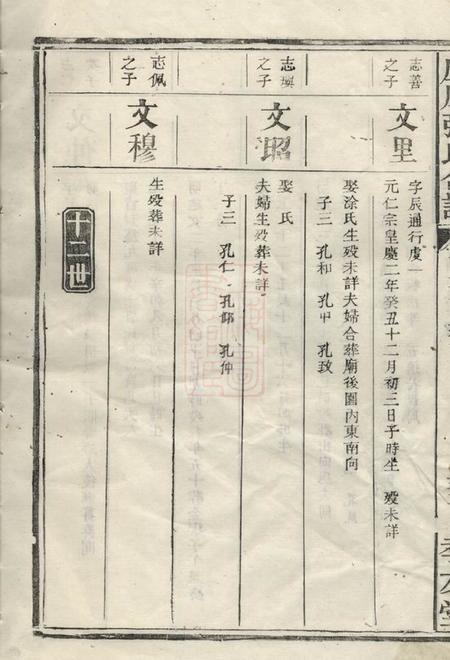 志善
之子
文里
字辰通行虔一
元仁宗皇慶二年癸丑十二月初三日子時生 歿未詳
娶涂氏生歿未詳夫婦合葬廟後園內東南向
子三 孔和 孔中 孔致
之子
文昭
娶 氏
夫婦生歿葬未詳
子三 孔仁 孔仰 孔仲
志佩
之子
文穆
生歿葬未詳
十二世